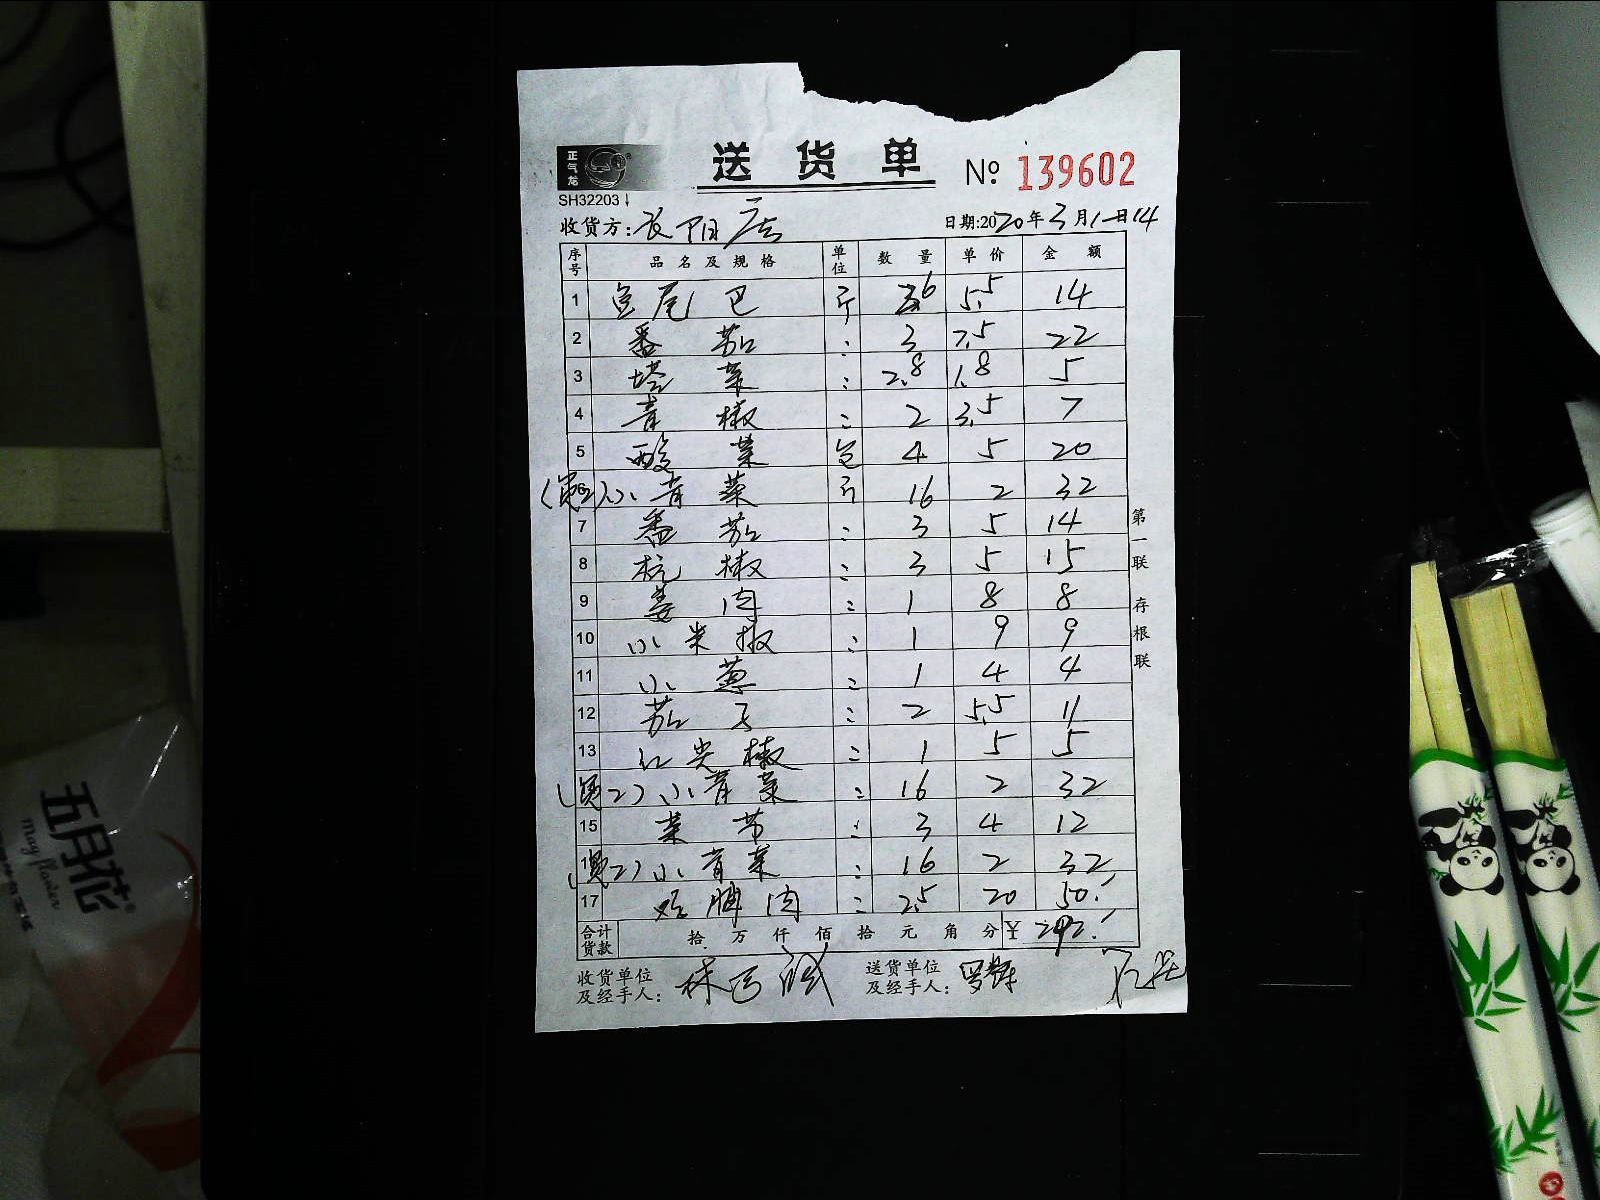 正气龙
送货单 № 139602
SH32203
收货方: 长阳店 日期:2020年3月1日14
序号 品名及规格 单位 数量 单价 金额
1 鱼尾巴 斤 2.6 5.5 14
2 番茄 : 3 7.5 22
3 塔菜 : 2.8 1.8 5
4 青椒 : 2 3.5 7
5 酸菜 包 4 5 20
小青菜 斤 16 2 32
7 番茄 : 3 5 14
8 杭椒 : 3 5 15
9 姜肉 : 1 8 8
10 小米椒 : 1 9 9
11 小葱 : 1 4 4
12 茄子 : 2 5.5 11
13 红尖椒 : 1 5 5
小青菜 : 16 2 32
15 菜苔 : 3 4 12
小青菜 : 16 2 32
17 : 2.5 20 50
合计货款 拾 万 仟 佰 拾 元 角 分 ¥ 292
收货单位及经手人: 送货单位及经手人: 罗辉
第一联 存根联
五月花
May flower